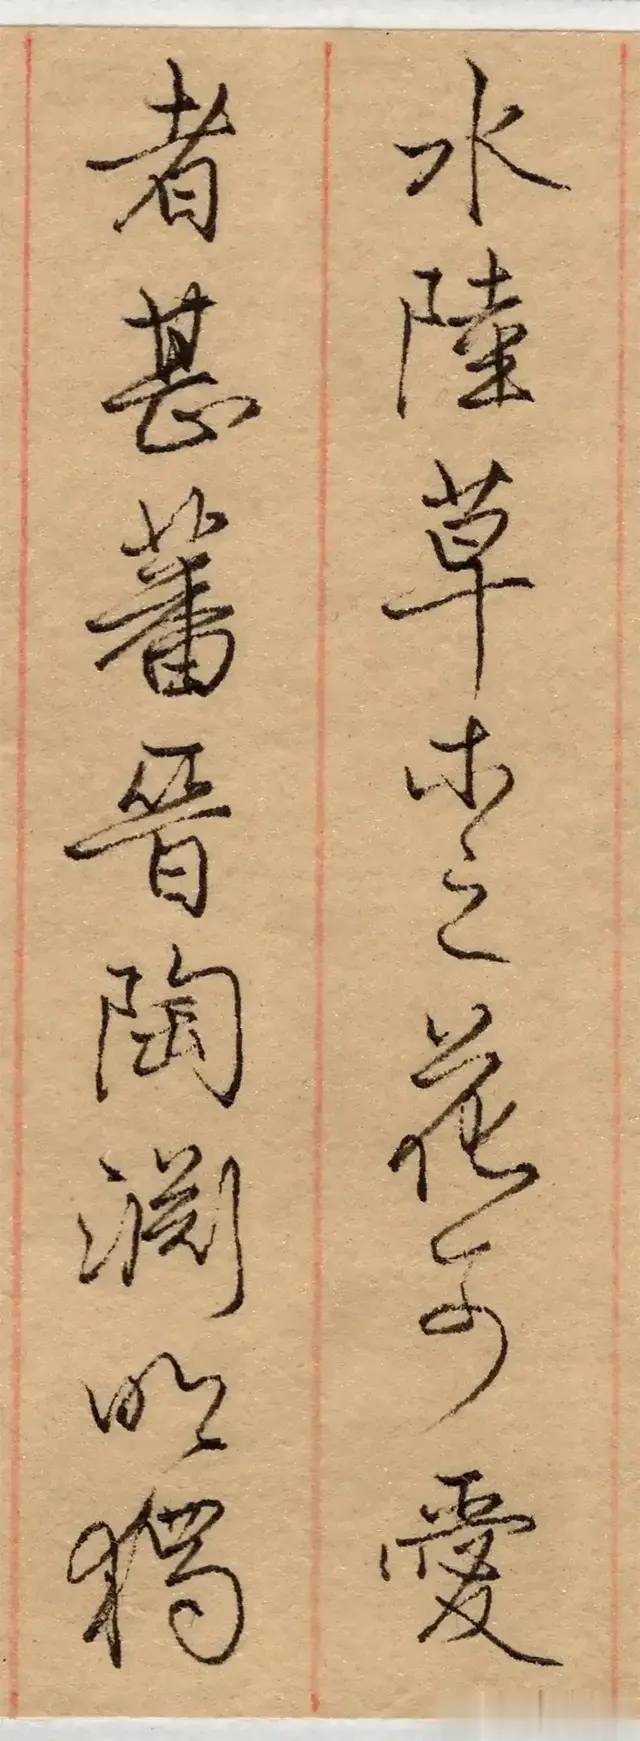 水陸草木之花可愛
者甚蕃晉陶淵明獨